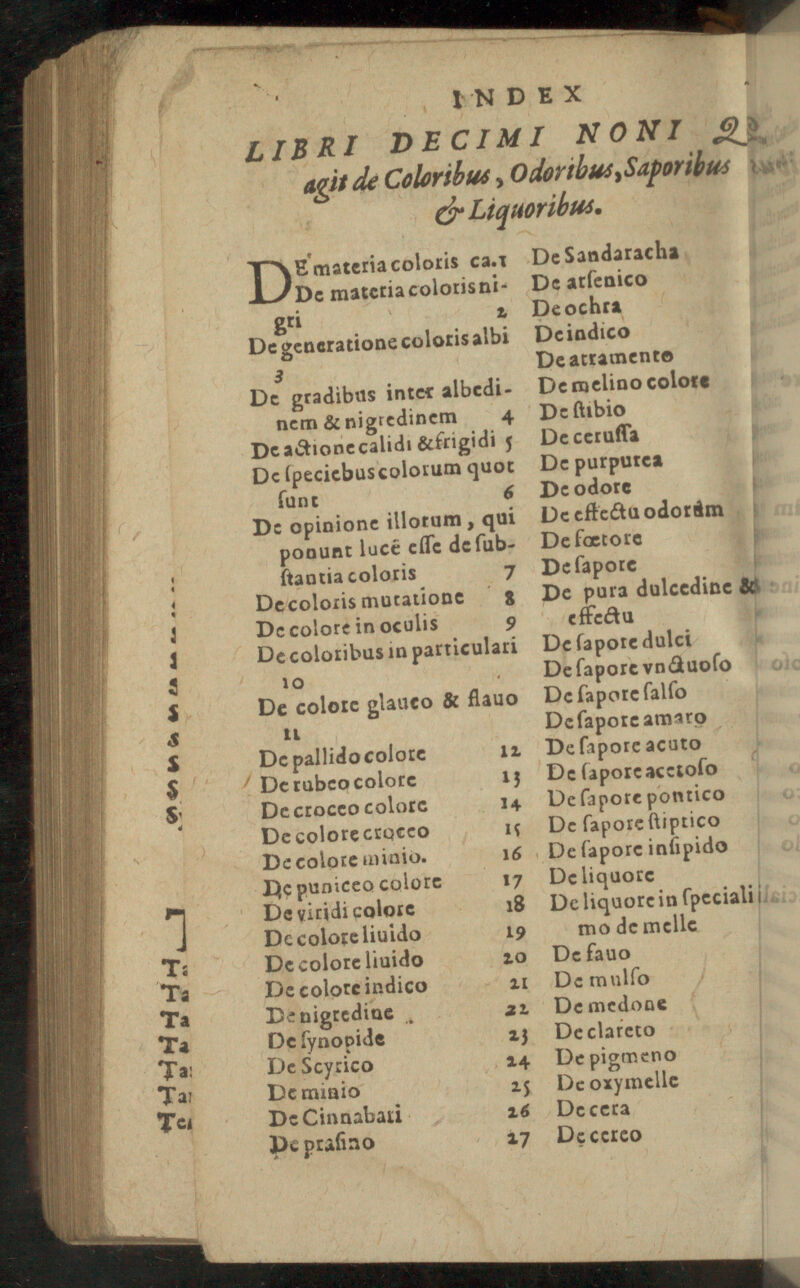 INDEX
LIBRI DECIMI NONI
agit de Coloribus, Odoribus, Saporibus
& Liquoribus.
DE materia coloris ca.1
De materia coloris ni-
gri 2
De generatione coloris albi
3
De gradibus inter albedi-
nem & nigredinem 4
De actione calidi & frigidi 5
De ſpeciebus colorum quot
ſunt 6
De opinione illorum, qui
ponunt lucē eſſe de ſub-
ſtantia coloris 7
De coloris mutatione 8
De colore in oculis 9
De coloribus in particulari
10
De colore glauco & flauo
11
De pallido colore 12
De rubeo colore 13
De croceo colore 14
De colore croceo 15
De colore minio. 16
De puniceo colore 17
De viridi colore 18
De colore liuido 19
De colore liuido 20
De colore indico 21
De nigredine 22
De ſynopide 23
De Scyrico 24
De minio 25
De Cinnabari 26
De praſino 27
De Sandaracha
De arſenico
De ochra
De indico
De atramento
De melino colore
De ſtibio
De ceruſſa
De purpurea
De odore
De effectu odorum
De fœtore
De ſapore
De pura dulcedine &
effectu
De ſapore dulci
De ſapore vnctuoſo
De ſapore ſalſo
De ſapore amaro
De ſapore acuto
De ſapore acetoſo
De ſapore pontico
De ſapore ſtiptico
De ſapore inſipido
De liquore
De liquore in ſpeciali
mo de melle
De fauo
De mulſo
De medone
De clareto
De pigmeno
De oxymelle
De cera
De cereo
Ta
Ta
Ta
Ta
Ta